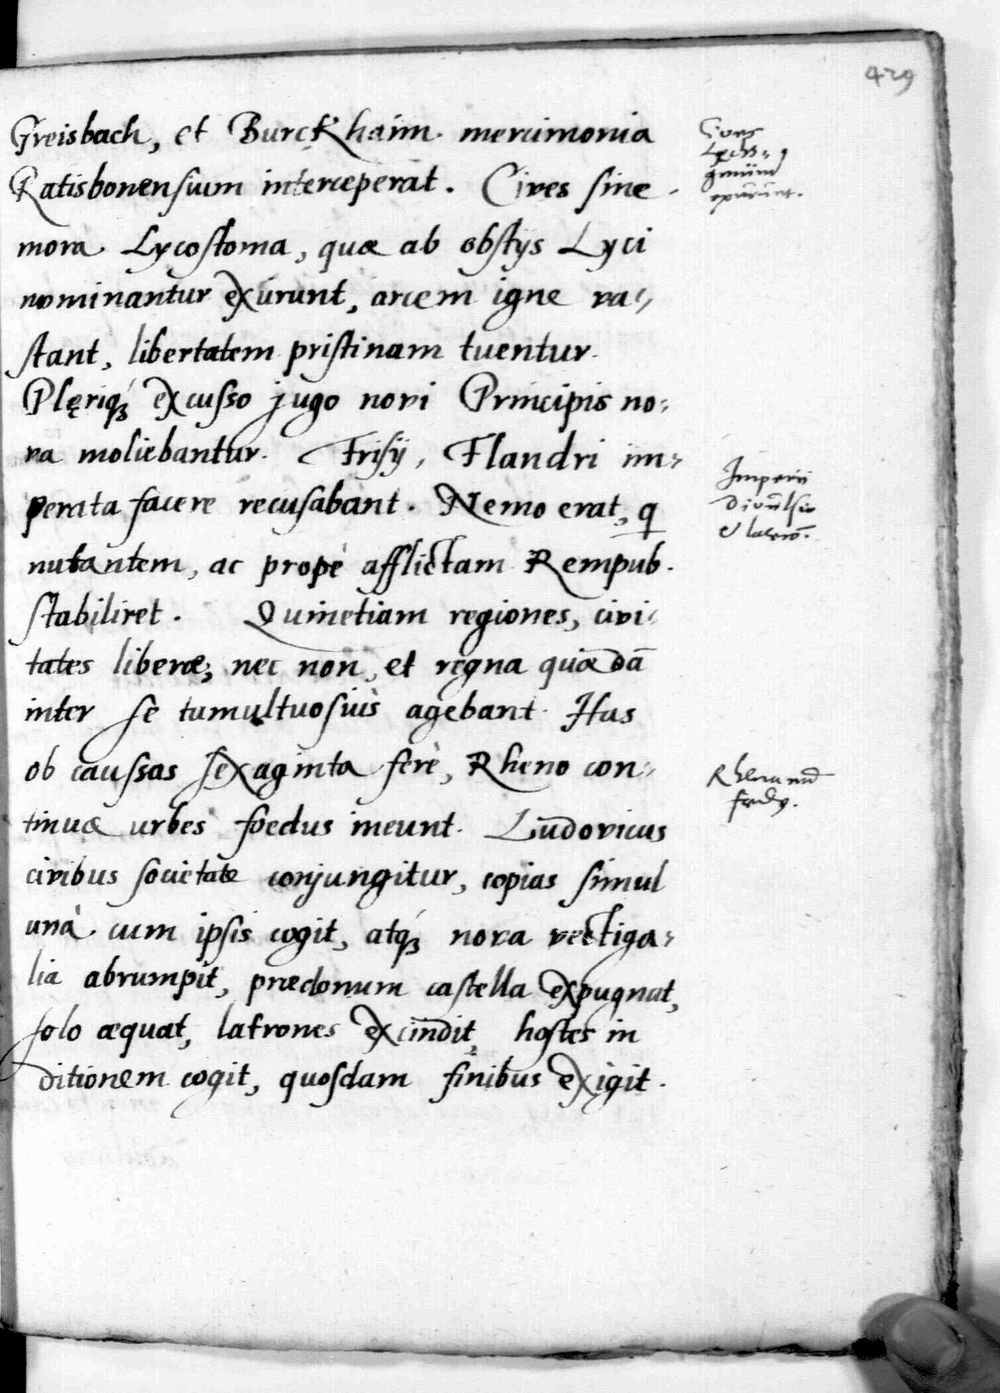 429
Greisbach, et Burckhaim. mercimonia
Ratisbonensium interceperat. Cives sine
mora Lycostoma, quæ ab obstys Lyci
nominantur exurunt, arcem igne va-
stant, libertatem pristinam tuentur.
Plęriq́ꝫ excusso jugo novi Principis no-
va moliebantur. Frisij, Flandri im-
perata facere recusabant. Nemo erat, q
nutantem, ac propè afflictam Rempub.
stabiliret. Quinetiam regiones, civi-
tates liberæ, nec non, et regna quædā
inter se tumultuosiùs agebant. Has
ob caussas sexaginta ferè, Rheno con-
tinuæ urbes foedus ineunt. Ludovicus
civibus societate conjungitur, copias simul
unà cum ipsis cogit, atq́ꝫ nova vectiga-
lia abrumpit, prædonum castella expugnat,
solo æquat, latrones excindit, hostes in
ditionem cogit, quosdam finibus exigit.
Imperii